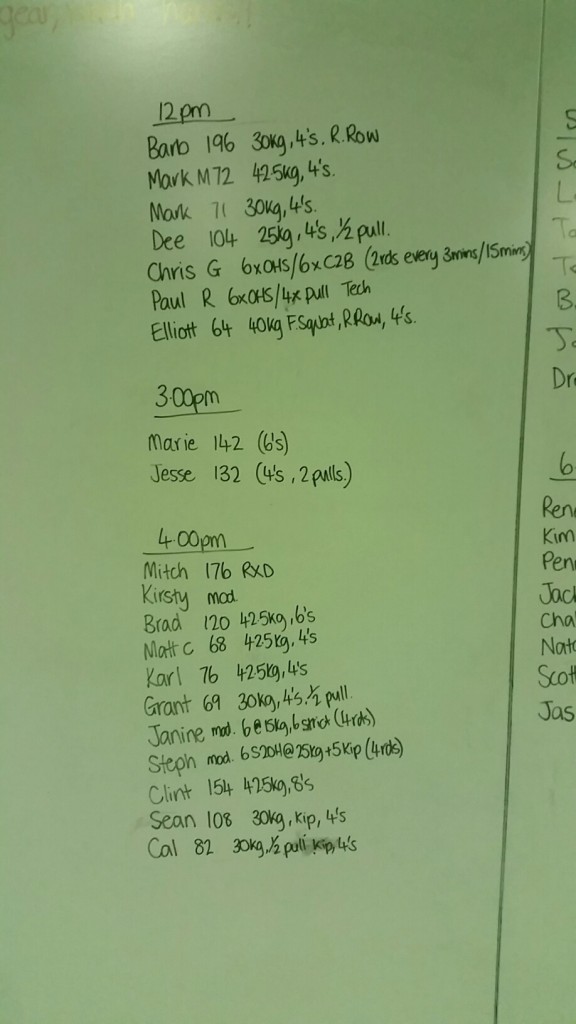 gear,
12pm
Barb 196 30kg, 4's. R.Row
Mark M 72 42.5kg, 4's.
Mark 71 30kg, 4's.
Dee 104 25kg, 4's, 1/2 pull.
Chris G 6xOHS/6xC2B (2rds every 3mins/15mins)
Paul R 6xOHS/4x pull Tech
Elliott 64 40kg F.Squat, R.Row, 4's.
3.00pm
Marie 142 (6's)
Jesse 132 (4's, 2 pulls.)
4.00pm
Mitch 176 RXD
Kirsty mod.
Brad 120 42.5kg, 6's
Matt C 68 42.5kg, 4's
Karl 76 42.5kg, 4's
Grant 69 30kg, 4's. 1/2 pull.
Janine mod. 6@15kg, 6 strict (4rds)
Steph mod. 6 S2OH@25kg+5kip (4rds)
Clint 154 42.5kg, 8's
Sean 108 30kg, kip, 4's
Cal 82 30kg, 1/2 pull kip, 4's
S
L
B
Dr
6
Ren
Kim
Pen
Jac
Cha
Nat
Scott
Jas